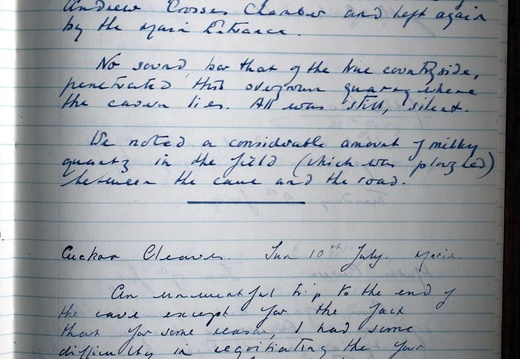 Andrew Crosses Chamber and left again
by the main Entrance.
No sound, bar that of the true countryside,
penetrated this overgrown quarry where
the cavern lies. All was still, silent.
We noted a considerable amount of milky
quartz in the field (which was ploughed)
between the cave and the road.
Cuckoo Cleeves. Sun 10th July.
An uneventful trip to the end of
the cave except for the fact
that for some reason, I had some
difficulty in negotiating the